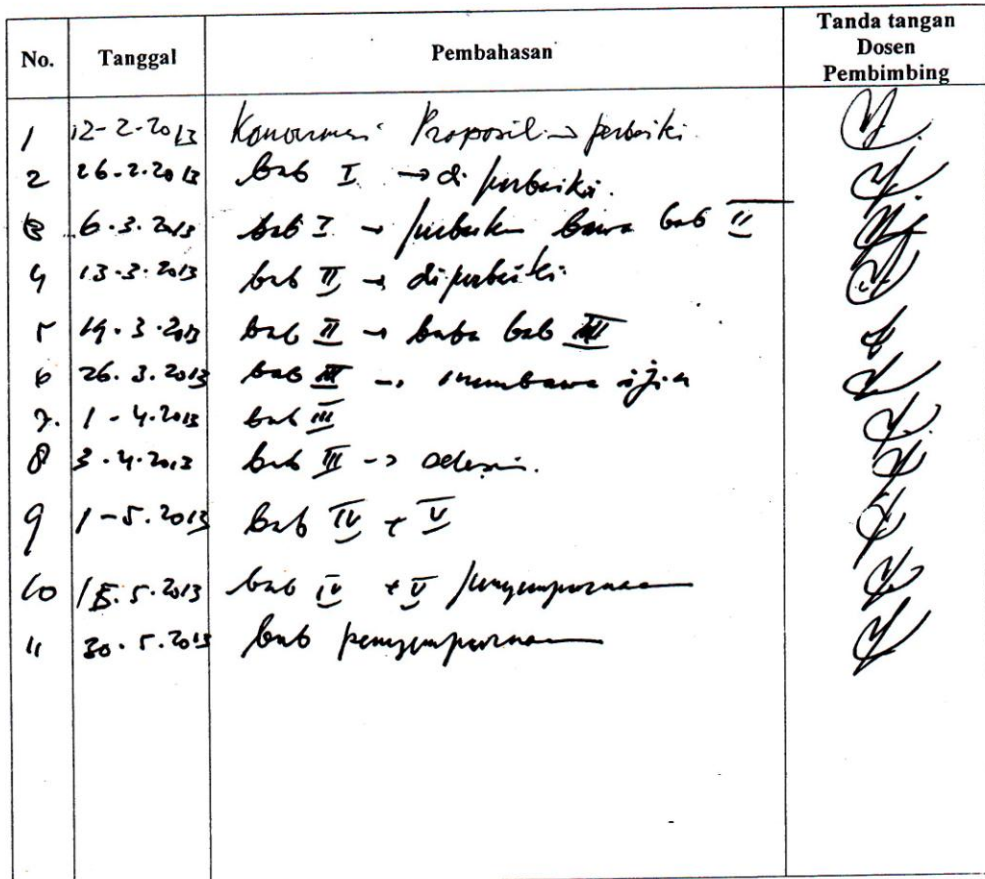 No. Tanggal Pembahasan Tanda tangan Dosen Pembimbing
1 12-2-2013 Proposil → perbaiki.
2 26.2.2013 bab I → di perbaiki.
3 6.3.2013 bab I → bawa bab II
4 13.3.2013 bab II → diperbaiki
5 19.3.2013 bab II → bab III
6 26.3.2013 bab III → membawa ijin
7. 1-4.2013 bab III
8 3.4.2013 bab III ->
9 1-5.2013 bab IV + V
10 15.5.2013 bab IV + V penyempurnaan
11 30.5.2013 bab penyempurnaan